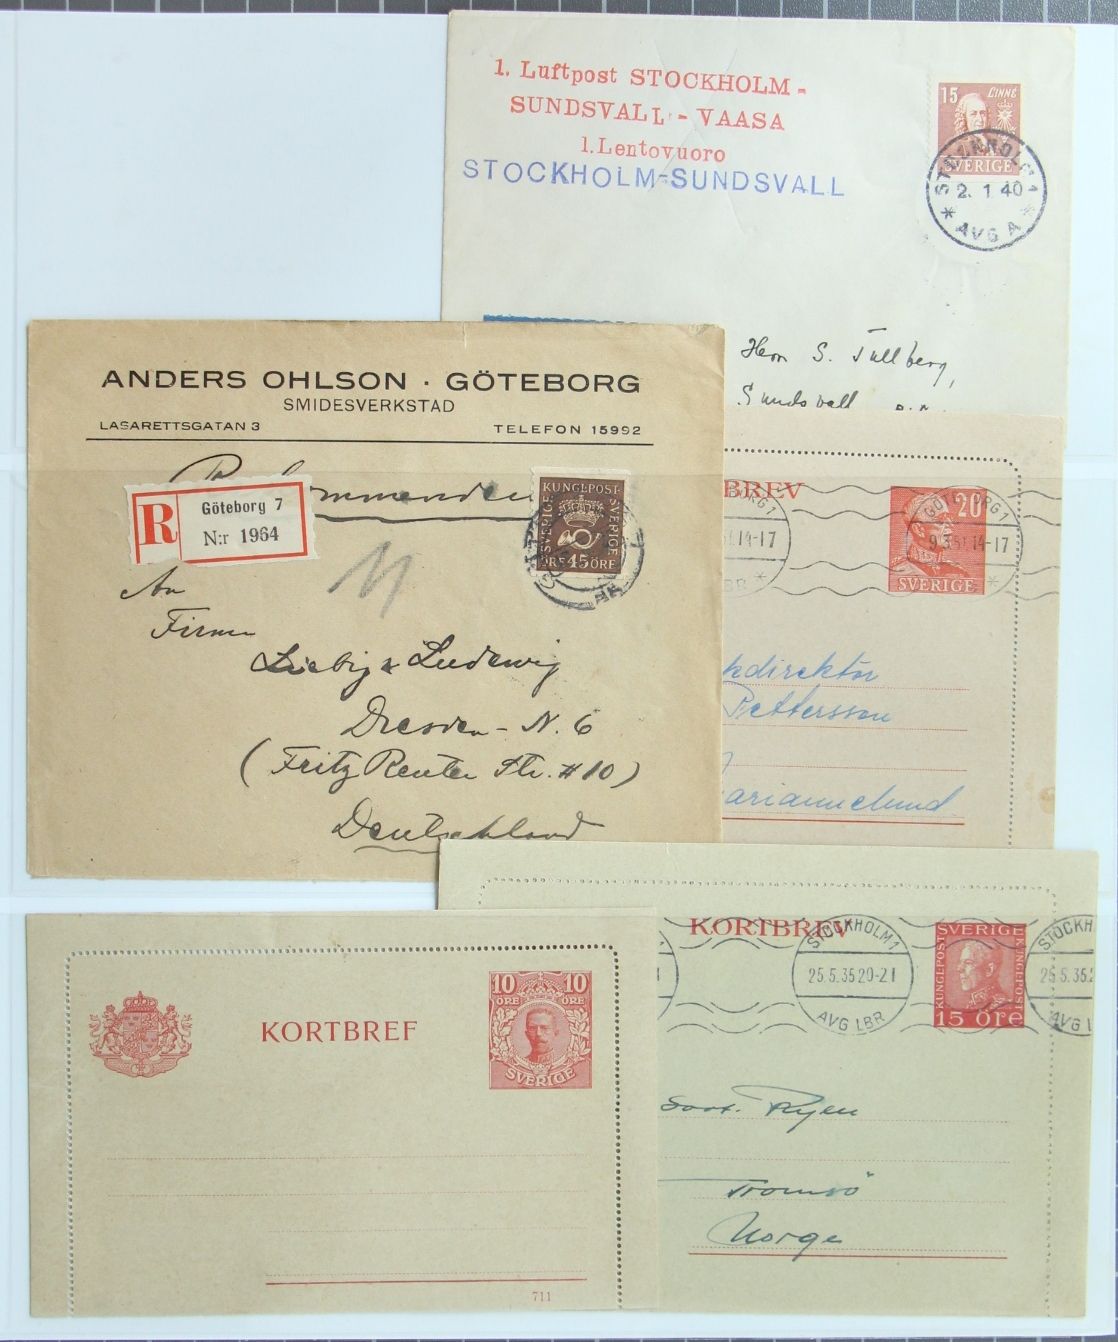 1. Luftpost STOCKHOLM -
SUNDSVALL - VAASA
1. Lentovuoro
STOCKHOLM-SUNDSVALL
15 LINNÉ
SVERIGE
STOCKHOLM 1
2. 1 40
* AVG A *
Herr S. Tullberg,
Sundsvall
ANDERS OHLSON · GÖTEBORG
SMIDESVERKSTAD
LASARETTSGATAN 3 TELEFON 15992
Rekommenderas
R Göteborg 7
N:r 1964
KUNGL.POST-
SVERIGE SVERIGE
ÖRE 45 ÖRE
11
An
Firma
Liebig & Ludewig
Dresden - N. 6
(Fritz Reuter Str. #10)
Deutschland
BREV
20
SVERIGE
GÖTEBORG 1
9.3.51.14-17
51.14-17
kdirektör
Pettersson
ariannelund
KORTBREV
STOCKHOLM 1
25.5.35 20-21
AVG LBR
SVERIGE
KUNGL.POST KUNGL.POST
15 öre
STOCKH
25.5.35.2
AVG L
Tromsö
Norge
KORTBREF
10 10
ÖRE ÖRE
SVERIGE
711